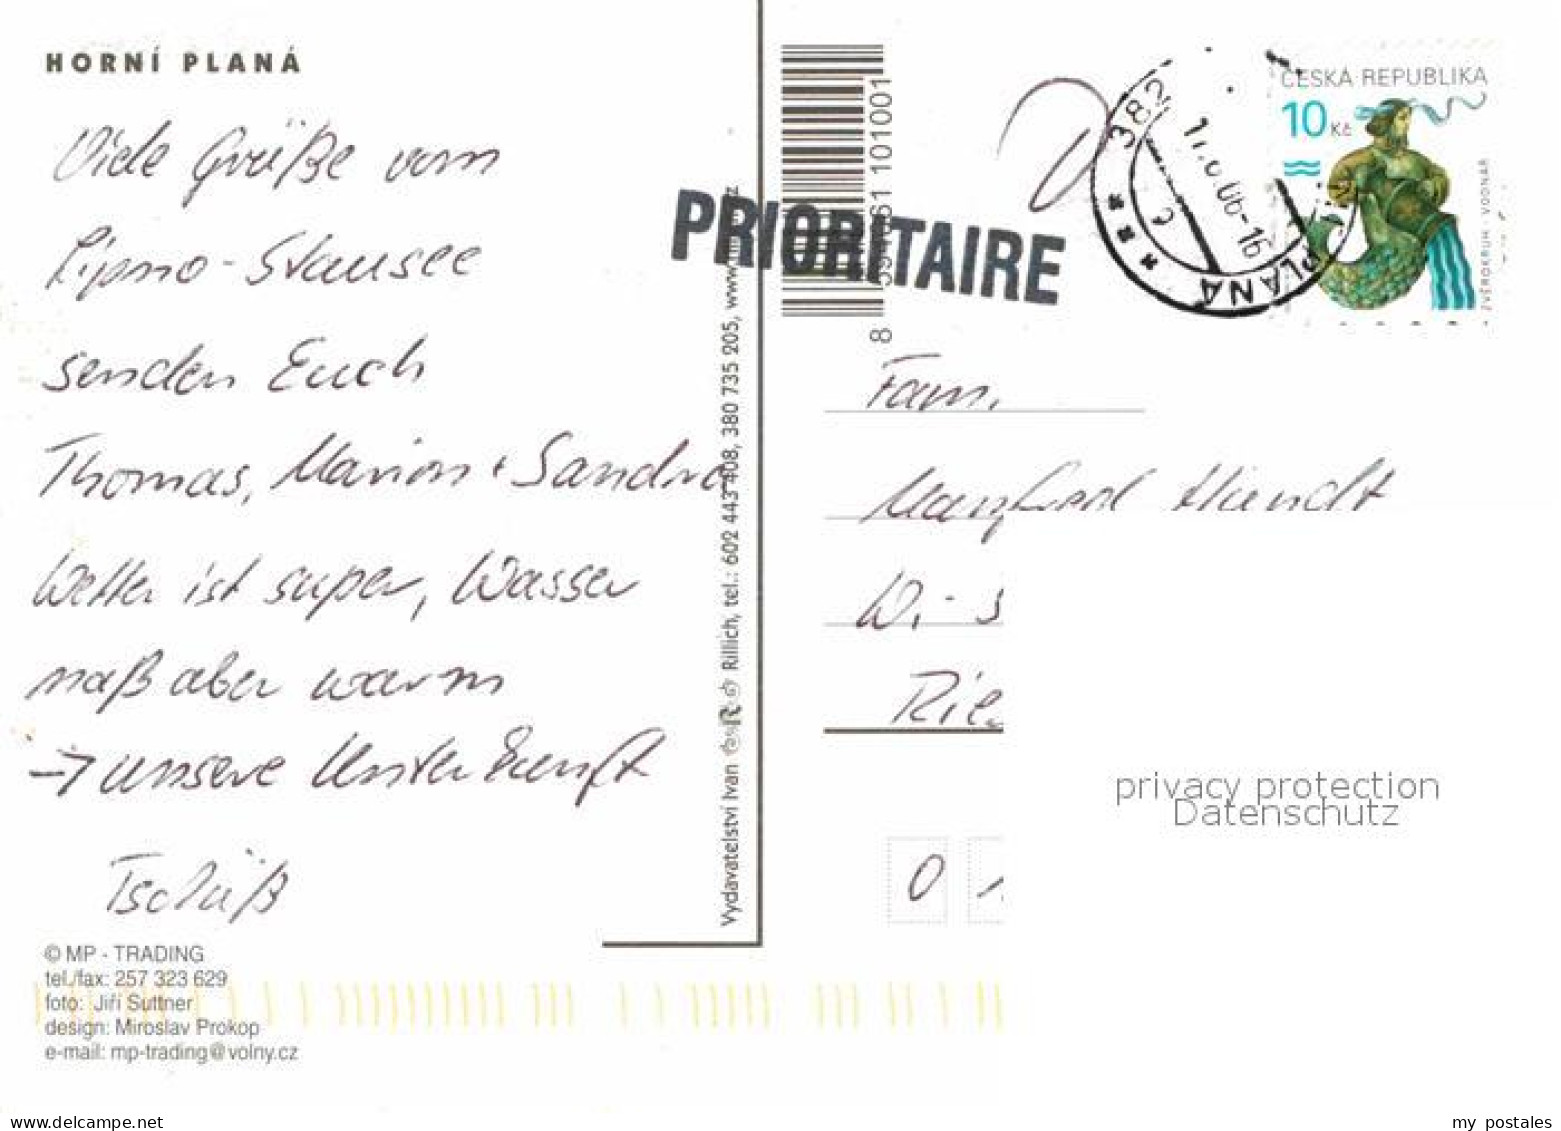 HORNÍ PLANÁ
Viele Grüße vom
Lipno-Stausee
senden Euch
Thomas, Marion + Sandra
Wetter ist super, Wasser
naß aber warm
→ unsere Unterkunft
Tschüß
© MP - TRADING
tel./fax: 257 323 629
foto: Jiří Suttner
design: Miroslav Prokop
e-mail: mp-trading@volny.cz
Vydavatelství Ivan Rillich, tel.: 602 443 408, 380 735 205, www.
8 101001
PRIORITAIRE
382
06-16
PLANÁ
ČESKÁ REPUBLIKA
10 Kč
ZVĚROKRUH VODNÁŘ
Fam.
Manfred Hundt
0
privacy protection
Datenschutz
www.delcampe.net
my_postales